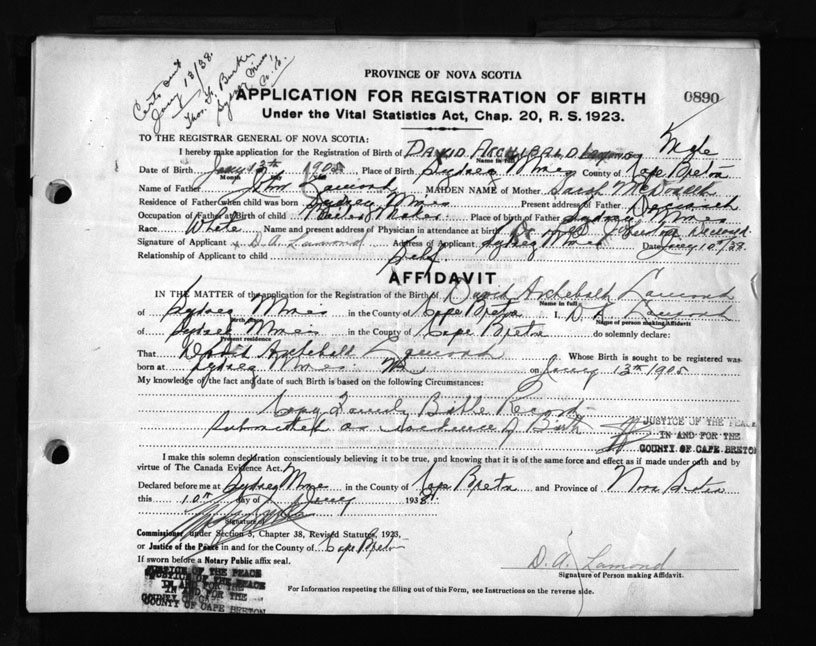 Cert. sent
Jany 18/38.
Thos. H. Burke
Sydney Mines
N.S.
PROVINCE OF NOVA SCOTIA
APPLICATION FOR REGISTRATION OF BIRTH
0890
Under the Vital Statistics Act, Chap. 20, R. S. 1923.
TO THE REGISTRAR GENERAL OF NOVA SCOTIA:
I hereby make application for the Registration of Birth of DAVID ARCHIBALD Lamond Male
Name in full
Date of Birth Jany 13th 1905 Place of Birth Sydney Mines County of Cape Breton
Month
Name of Father John Lamond MAIDEN NAME of Mother Sarah McDonald
Residence of Father when child was born Sydney Mines Present address of Father Deceased
Occupation of Father at Birth of child Boiler Maker Place of birth of Father Sydney Mines
Race White Name and present address of Physician in attendance at birth
Signature of Applicant D. A. Lamond Address of Applicant Sydney Mines Date Jany 10th/38.
Relationship of Applicant to child Self
AFFIDAVIT
IN THE MATTER of the application for the Registration of the Birth of David Archibald Lamond
Name in full
of Sydney Mines in the County of Cape Breton I, D A Lamond
Birth place Name of person making Affidavit
of Sydney Mines in the County of Cape Breton do solemnly declare:
Present residence
That David Archibald Lamond Whose Birth is sought to be registered was
born at Sydney Mines NS on Jany 13th 1905
My knowledge of the fact and date of such Birth is based on the following Circumstances:
Copy Family Bible Record
submitted as evidence of Birth
JUSTICE OF THE PEACE
IN AND FOR THE
COUNTY OF CAPE BRETON
I make this solemn declaration conscientiously believing it to be true, and knowing that it is of the same force and effect as if made under oath and by
virtue of The Canada Evidence Act.
Declared before me at Sydney Mines in the County of Cape Breton and Province of Nova Scotia
this 10th day of Jany 1938
Signature of
Commissioner under Section 5, Chapter 38, Revised Statutes, 1923,
or Justice of the Peace in and for the County of Cape Breton
If sworn before a Notary Public affix seal.
D. A. Lamond
Signature of Person making Affidavit.
JUSTICE OF THE PEACE
IN AND FOR THE
COUNTY OF CAPE BRETON
For Information respecting the filling out of this Form, see Instructions on the reverse side.